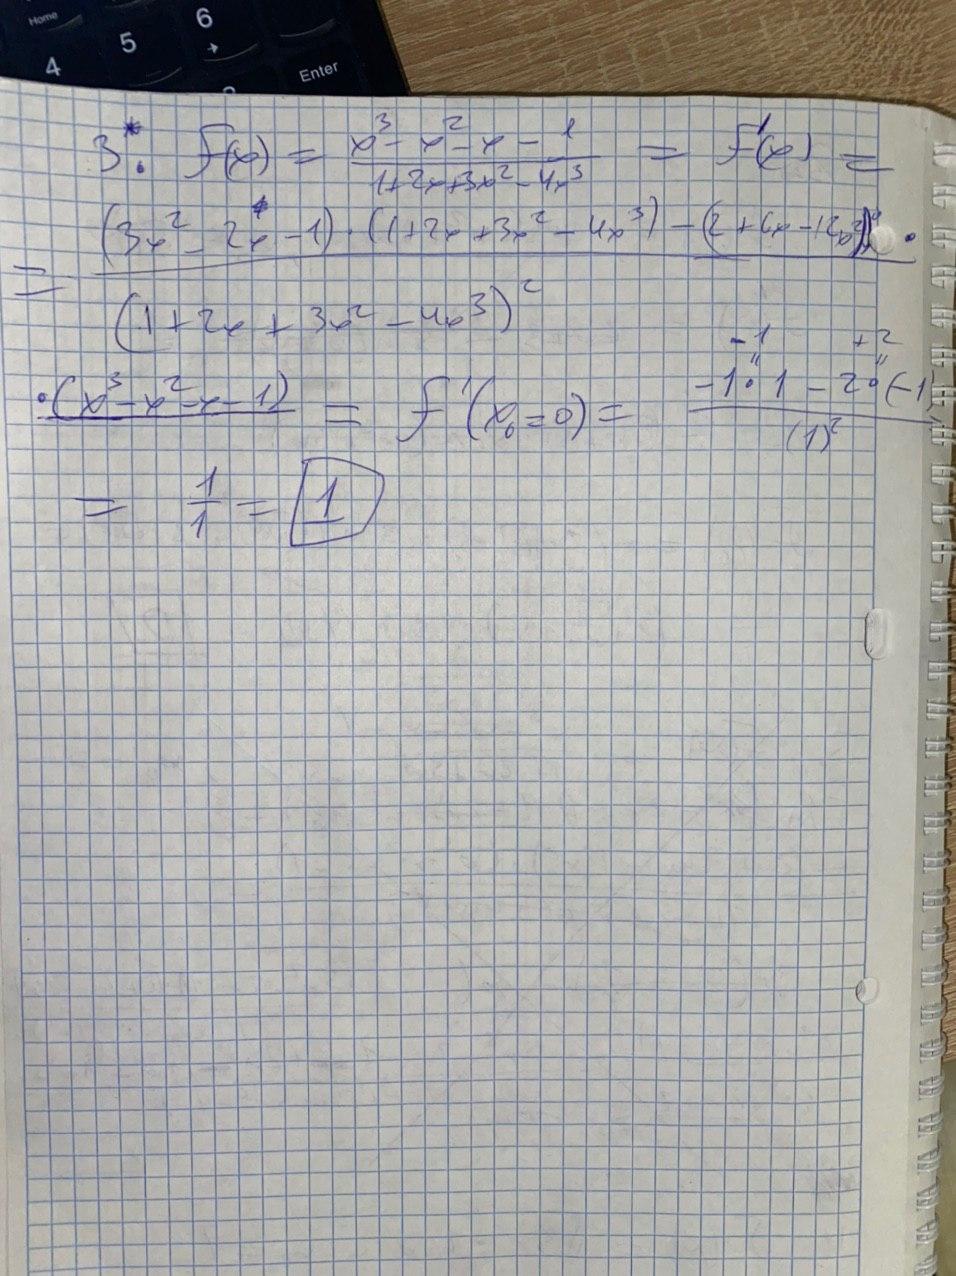 Home
6
5
4
Enter
3*. f(x) = (x³ - x² - x - 1)/(1+2x+3x² - 4x³) = f'(x) =
= ((3x² - 2x - 1)·(1+2x+3x² - 4x³) - (2+6x-12x²)·
(1+2x+3x² - 4x³)²
·(x³ - x² - x - 1) = f'(x₀=0) = (-1·1 - 2·(-1))/(1)²
-1 +2
= 1/1 = 1